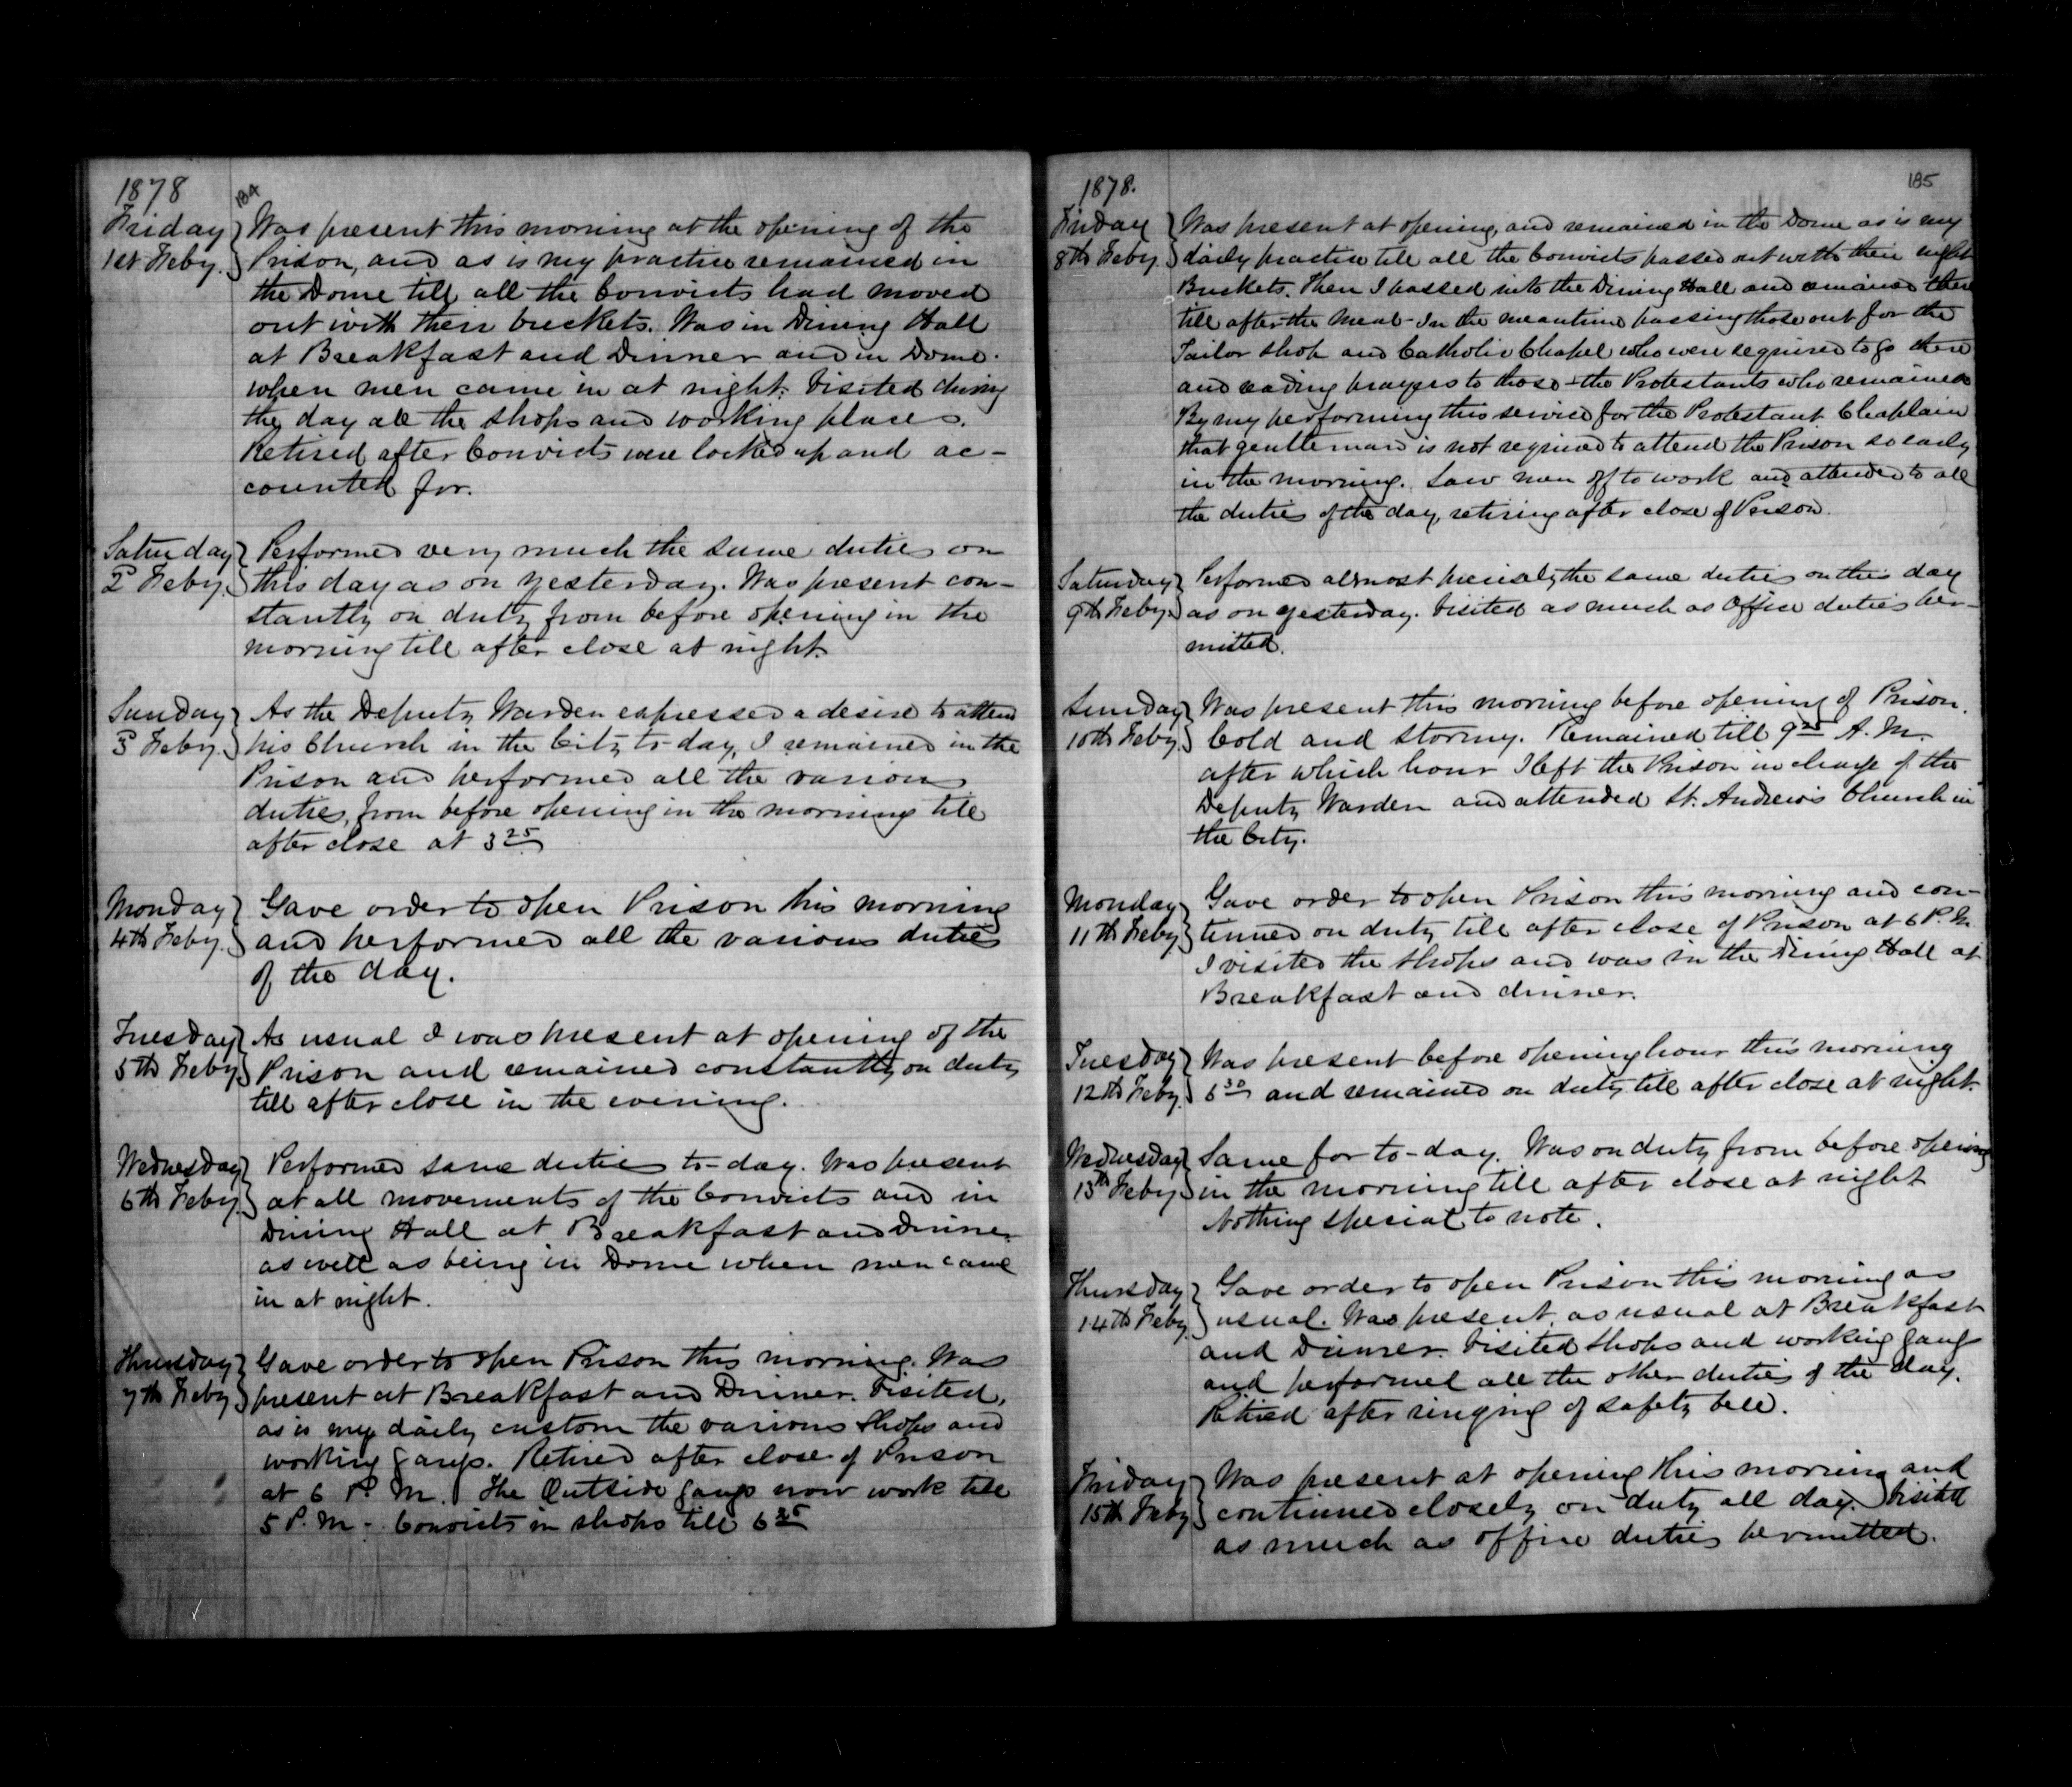 1878
184
Friday
1st Feby.
Was present this morning at the opening of the
Prison, and as is my practice remained in
the Dome till all the Convicts had moved
out with their buckets. Was in Dining Hall
at Breakfast and Dinner and in Dome
when men came in at night. Visited during
the day all the shops and working places.
Retired after Convicts were locked up and ac-
counted for.
Saturday
2d Feby.
Performed very much the same duties on
this day as on yesterday. Was present con-
stantly on duty from before opening in the
morning till after close at night.
Sunday
3d Feby.
As the Deputy Warden expressed a desire to attend
his Church in the City to-day, I remained in the
Prison and performed all the various
duties, from before opening in the morning till
after close at 3 25
Monday
4th Feby.
Gave order to open Prison this morning
and performed all the various duties
of the day.
Tuesday
5th Feby
As usual I was present at opening of the
Prison and remained constantly on duty
till after close in the evening.
Wednesday
6th Feby.
Performed same duties to-day. Was present
at all movements of the Convicts and in
Dining Hall at Breakfast and Dinner
as well as being in Dome when men came
in at night.
Thursday
7th Feby
Gave order to open Prison this morning. Was
present at Breakfast and Dinner. Visited,
as is my daily custom the various shops and
working gangs. Retired after close of Prison
at 6 P. M. The Outside gangs now work till
5 P. M - Convicts in shops till 6 25
1878.
185
Friday
8th Feby.
Was present at opening, and remained in the Dome as is my
daily practice till all the Convicts passed out with their night
Buckets. Then I passed into the Dining Hall and remained there
till after the meal - In the meantime passing those out for the
Tailor shop and Catholic Chapel who were required to go there
and reading prayers to those - the Protestants who remained
By my performing this service for the Protestant Chaplain
that gentleman is not required to attend the Prison so early
in the morning. Saw men off to work and attended to all
the duties of the day, retiring after close of Prison.
Saturday
9th Feby.
Performed almost precisely the same duties on this day
as on yesterday. Visited as much as Office duties per-
mitted.
Sunday
10th Feby
Was present this morning before opening of Prison.
Cold and stormy. Remained till 9 25 A. M.
after which hour I left the Prison in charge of the
Deputy Warden and attended St. Andrew's Church in
the City.
Monday
11th Feby
Gave order to open Prison this morning and con-
tinued on duty till after close of Prison at 6 P. M.
I visited the shops and was in the Dining Hall at
Breakfast and dinner.
Tuesday
12th Feby.
Was present before opening hour this morning
6 30 and remained on duty till after close at night.
Wednesday
13th Feby
Same for to-day. Was on duty from before opening
in the morning till after close at night
Nothing special to note.
Thursday
14th Feby.
Gave order to open Prison this morning as
usual. Was present as usual at Breakfast
and Dinner. Visited shops and working gangs
and performed all the other duties of the day.
Retired after ringing of safety bell.
Friday
15th Feby
Was present at opening this morning and
continued closely on duty all day. Visited
as much as office duties permitted.